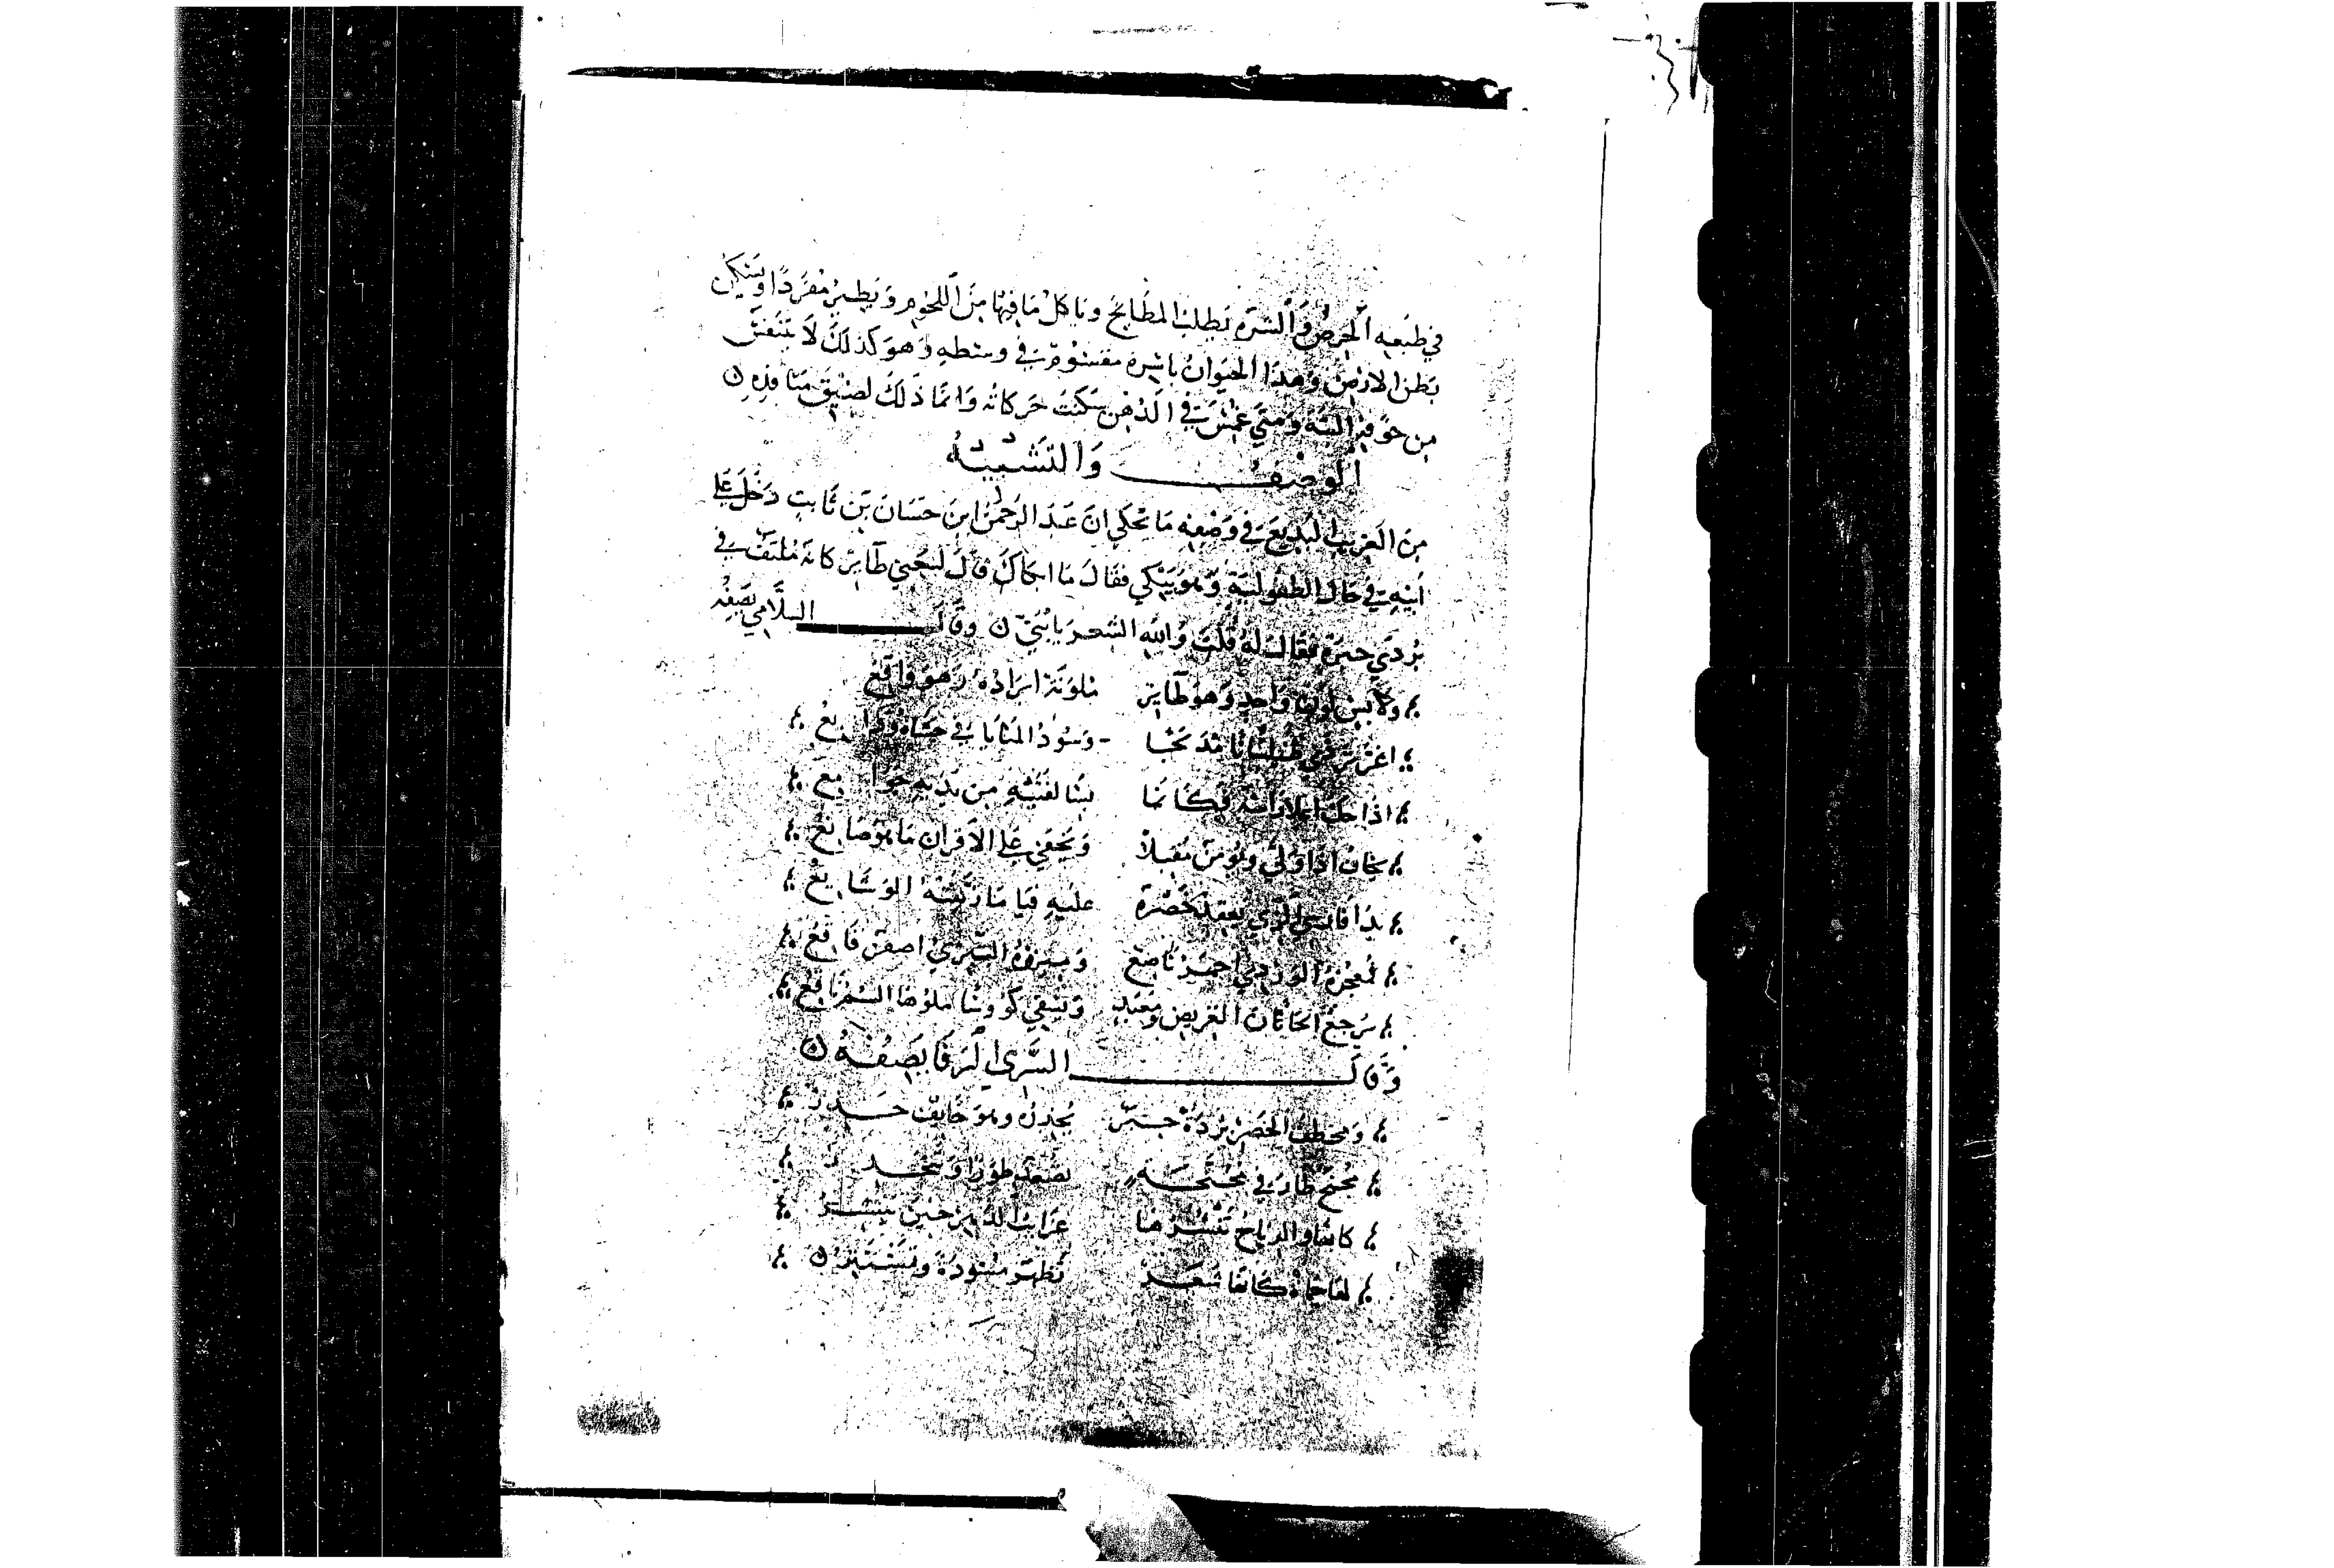 في طبعه الحرص والشره يطلب المطابخ وياكل ما فيها من اللحوم ويطير مفردا ويسكن
بطن الارض وهذا الحيوان باسره مقسوم في وسطه وهو كذلك لا يتنفس
من جوفه البتة ومتي غمس في الدهن سكنت حركاته وانما ذلك لضيق منافذه
الوصف والتشبيه
من الغريب البديع في وصفه ما حكي ان عبد الرحمن ابن حسان بن ثابت دخل علي
ابيه في حال الطفولية وهو يبكي فقال ما ابكاك قال لسعني طاير كانه ملتف في
بردي حبرة فقال له قلت والله الشعر يا بني وقال السلامي يصفه
ولابس لون واحد وهو طاير ملونة ابراده وهو واقع
اغر وسود المنايا في حشاه
اذا حك اعلا راسه فكانما بسالفتيه من يديه جوامع
يخاف اذا ولي ويومن مقبلا ويخفي علي الاقران ما هو صانع
بدا فارسي الزي يعقد خصره عليه قبا زينته الوشايع
فمعجزه الوردي احمر ناصع وميزره التبري اصفر فاقع
يرجع الحان الغريض ومعبد ويسقي كؤوسا ملؤها السم ناقع
وقال السري الرفا يصفه
ومخطف الخصر برده حبر وهو خايف
مجنح طار في مجنحة تصعد طورا وتنحدر
كانها والرياح تنشرها غرايب حين ينتشر
لها حماة كانها شعر تظهر مسودة وتستتر